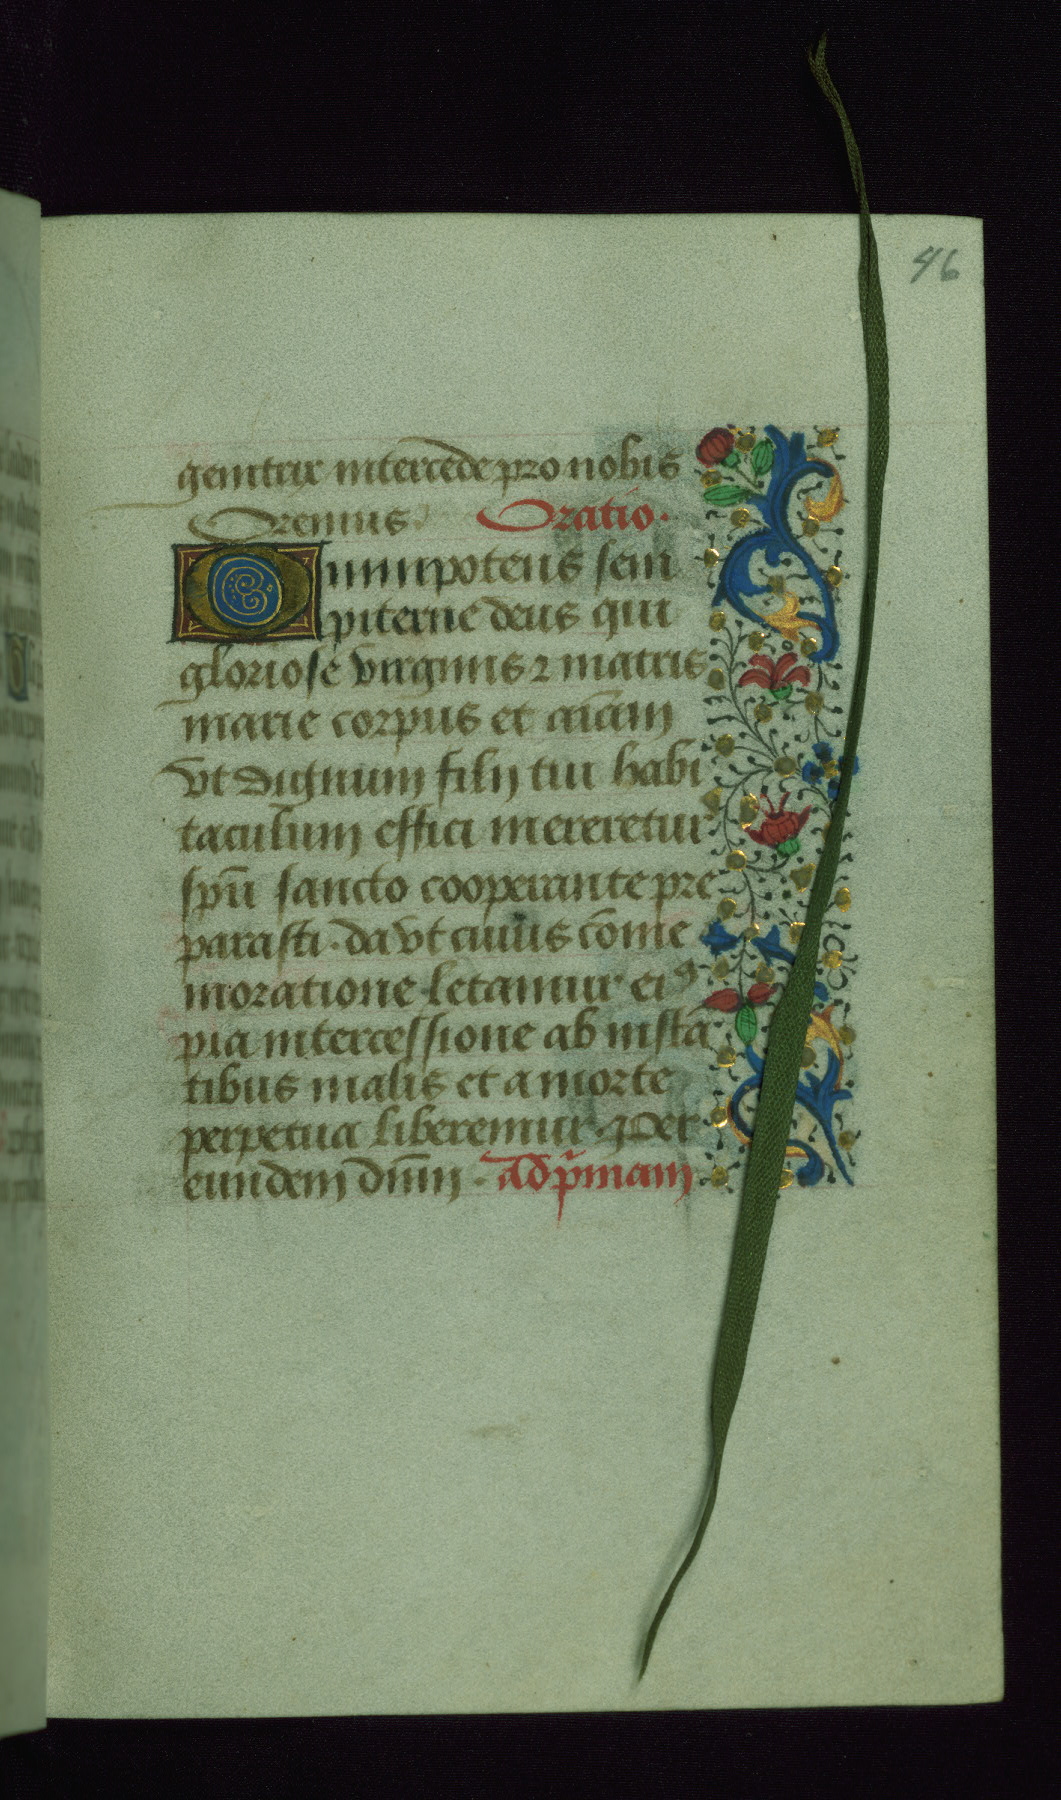 46
genitrix intercede pro nobis
Oremus Oratio.
Omnipotens sem
piterne deus qui
gloriose virginis ⁊ matris
marie corpus et aīam
vt dignum filij tui habi
taculum effici mereretur
spū sancto cooperante pre
parasti. da vt cuius cōme
moratione letamur eiꝰ
pia intercessione ab instā
tibus malis et a morte
perpetua liberemur. Per
eundem dn̄m. ad pͥmam